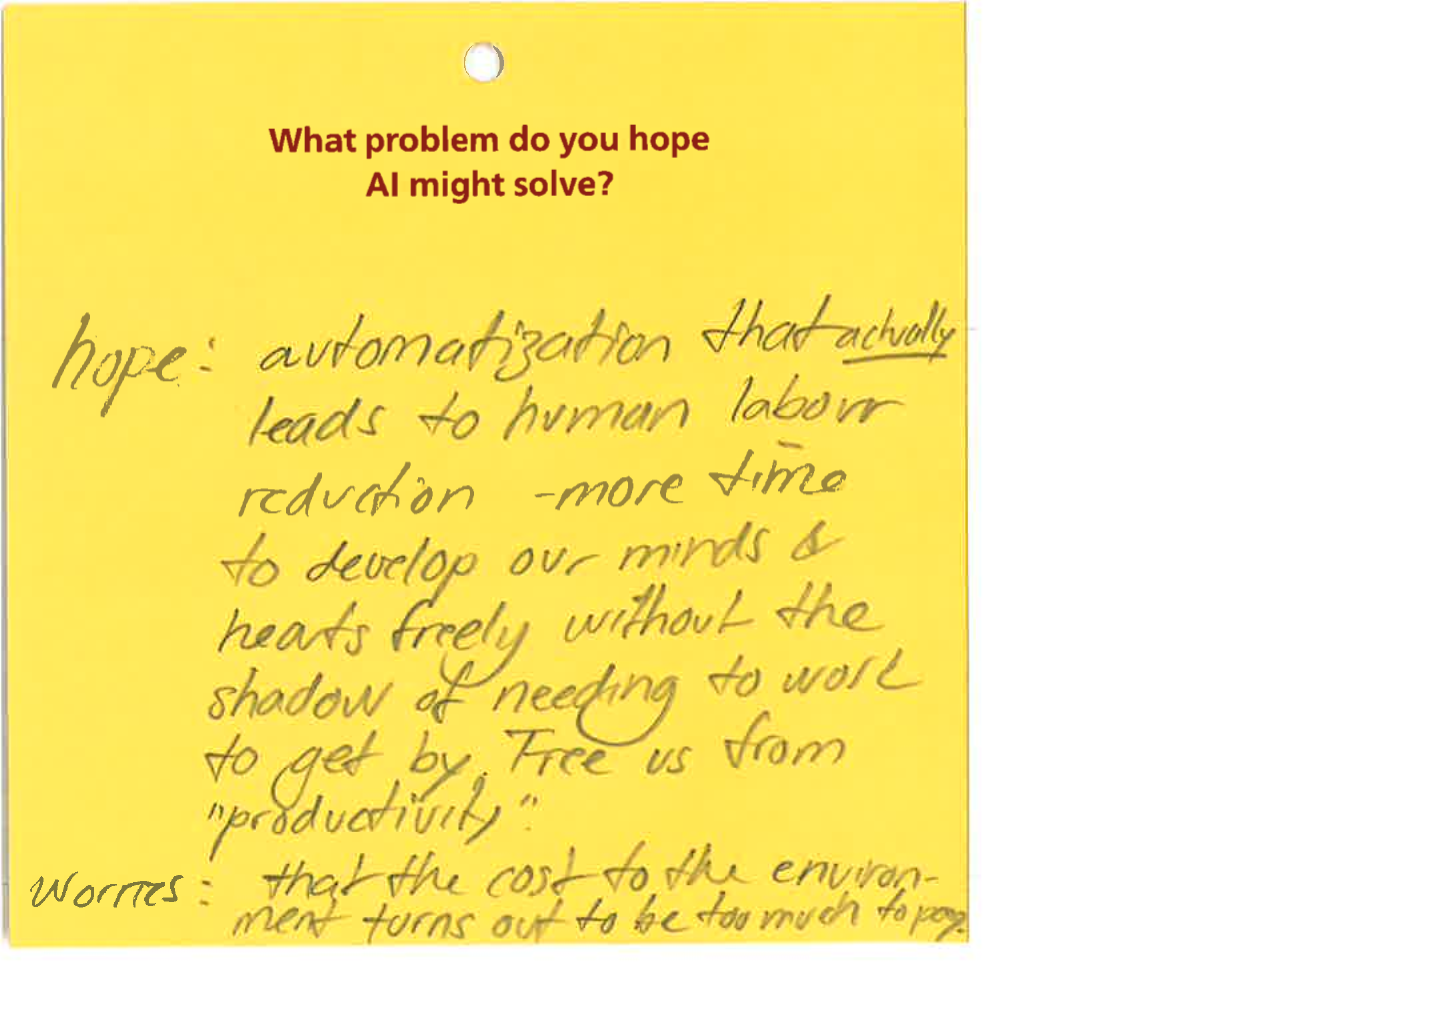 What problem do you hope
AI might solve?
hope: automatization that actually
leads to human labour
reduction - more time
to develop our minds &
hearts freely without the
shadow of needing to work
to get by. Free us from
"productivity".
Worries: that the cost to the environ-
ment turns out to be too much to pay.